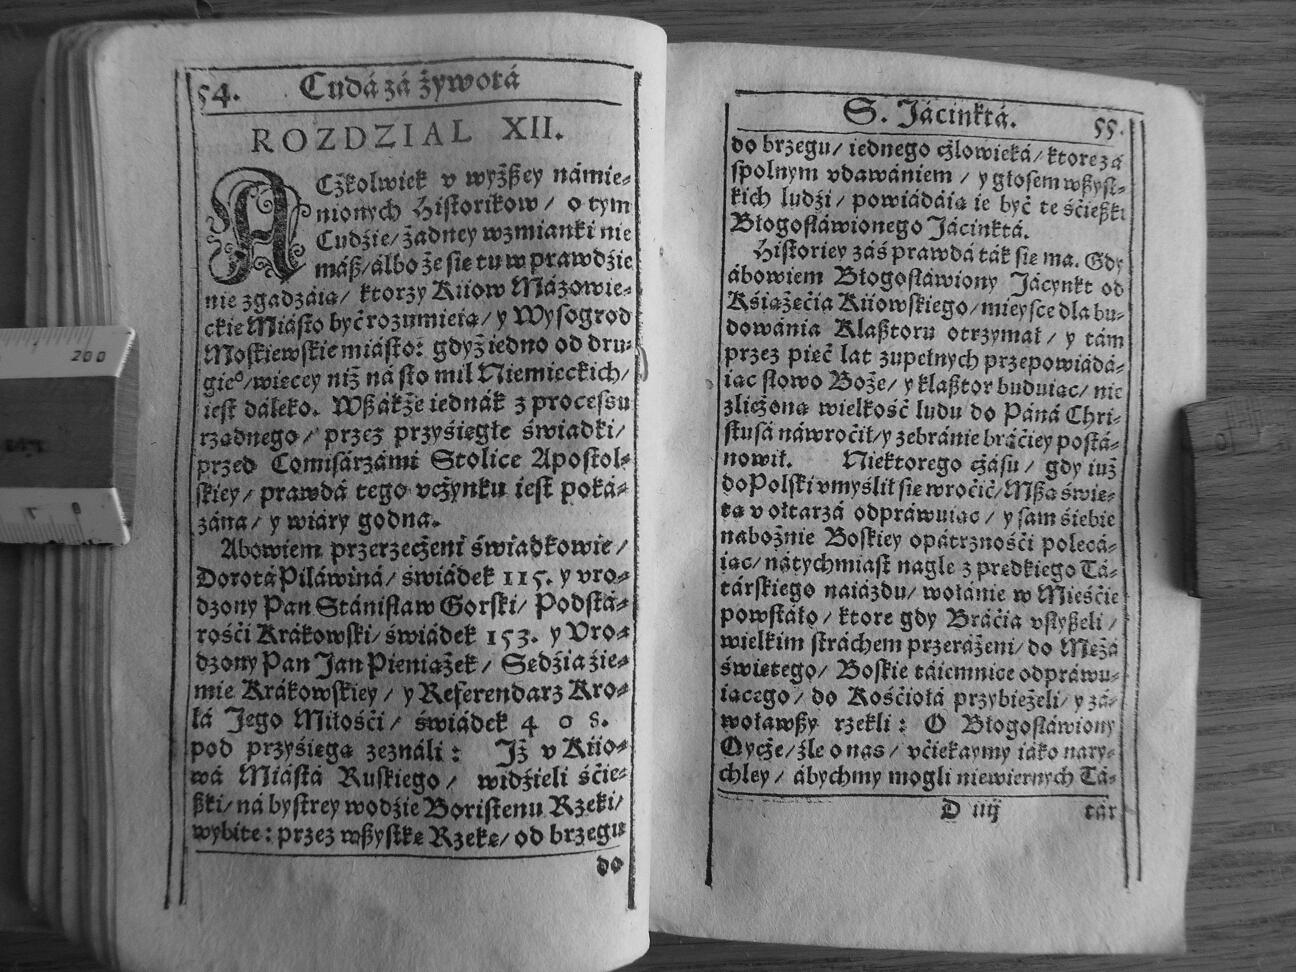 54. Cudá zá żywotá
ROZDZIAL XII.
ACżkolwiek v wyżßey námie⸗
nionych Historikow / o tym
Cudźie / żadney wzmianki nie
máß / álbo że się tu w prawdźie
nie zgadzáią / ktorzy Kiiow Mázowie⸗
ckie Miásto być rozumieią / y Wysogrod
Moskiewskie miásto: gdyż iedno od dru⸗
gieº / więcey niż ná sto mil Niemieckich /
iest dáleko. Wßákże iednák z processu
rządnego / przez przyśięgłe świadki /
przed Comisárzámi Stolice Apostol⸗
skiey / prawdá tego vcżynku iest poká⸗
zána / y wiáry godna.
Abowiem przerzecżeni świadkowie /
Dorotá Piláwiná / świádek 115. y vro⸗
dzony Pan Stánisław Gorski / Podstá⸗
rośći Krákowski / świádek 153. y Vro⸗
dzony Pan Jan Pieniążek / Sędźia źie⸗
mie Krákowskiey / y Referendarz Kro⸗
lá Jego Miłośći / świádek 4 0 8.
pod przyśięgą zeználi: Jż v Kiio⸗
wá Miástá Ruskiego / widźieli śćie⸗
ßki / ná bystrey wodźie Boristenu Rzeki /
wybite: przez wßystkę Rzekę / od brzegu
do
S. Jácinktá. 55.
do brzegu / iednego cżłowieká / ktore zá
spolnym vdawániem / y głosem wßyst⸗
kich ludźi / powiádáią ie być te śćießki
Błogosłáwionego Jácinktá.
Historiey záś prawdá ták się ma. Gdy
ábowiem Błogosłáwiony Jácynkt od
Kśiążęćia Kiiowskiego / mieysce dla bu⸗
dowánia Klaßtoru otrzymał / y tám
przez pięć lat zupełnych przepowiádá⸗
iąc słowo Boże / y klaßtor buduiąc / nie
zlicżoną wielkość ludu do Páná Chri⸗
stusá náwroćił / y zebránie bráćiey postá⸗
nowił. Niektorego cżásu / gdy iuż
do Polski vmyślił się wroćić / Mßą świę⸗
tą v ołtarzá odpráwuiąc / y sam śiebie
nabożnie Boskiey opátrznośći polecá⸗
iąc / nátychmiast nagle z prędkiego Tá⸗
társkiego naiázdu / wołánie w Mieśćie
powstáło / ktore gdy Bráćia vsłyßeli /
wielkim stráchem przeráżeni / do Mężá
świętego / Boskie táiemnice odpráwu⸗
iącego / do Kośćiołá przybieżeli / y zá⸗
woławßy rzekli: O Błogosłáwiony
Oycże / źle o nas / vćiekaymy iáko nary⸗
chley / ábychmy mogli niewiernych Tá⸗
D iiij tár